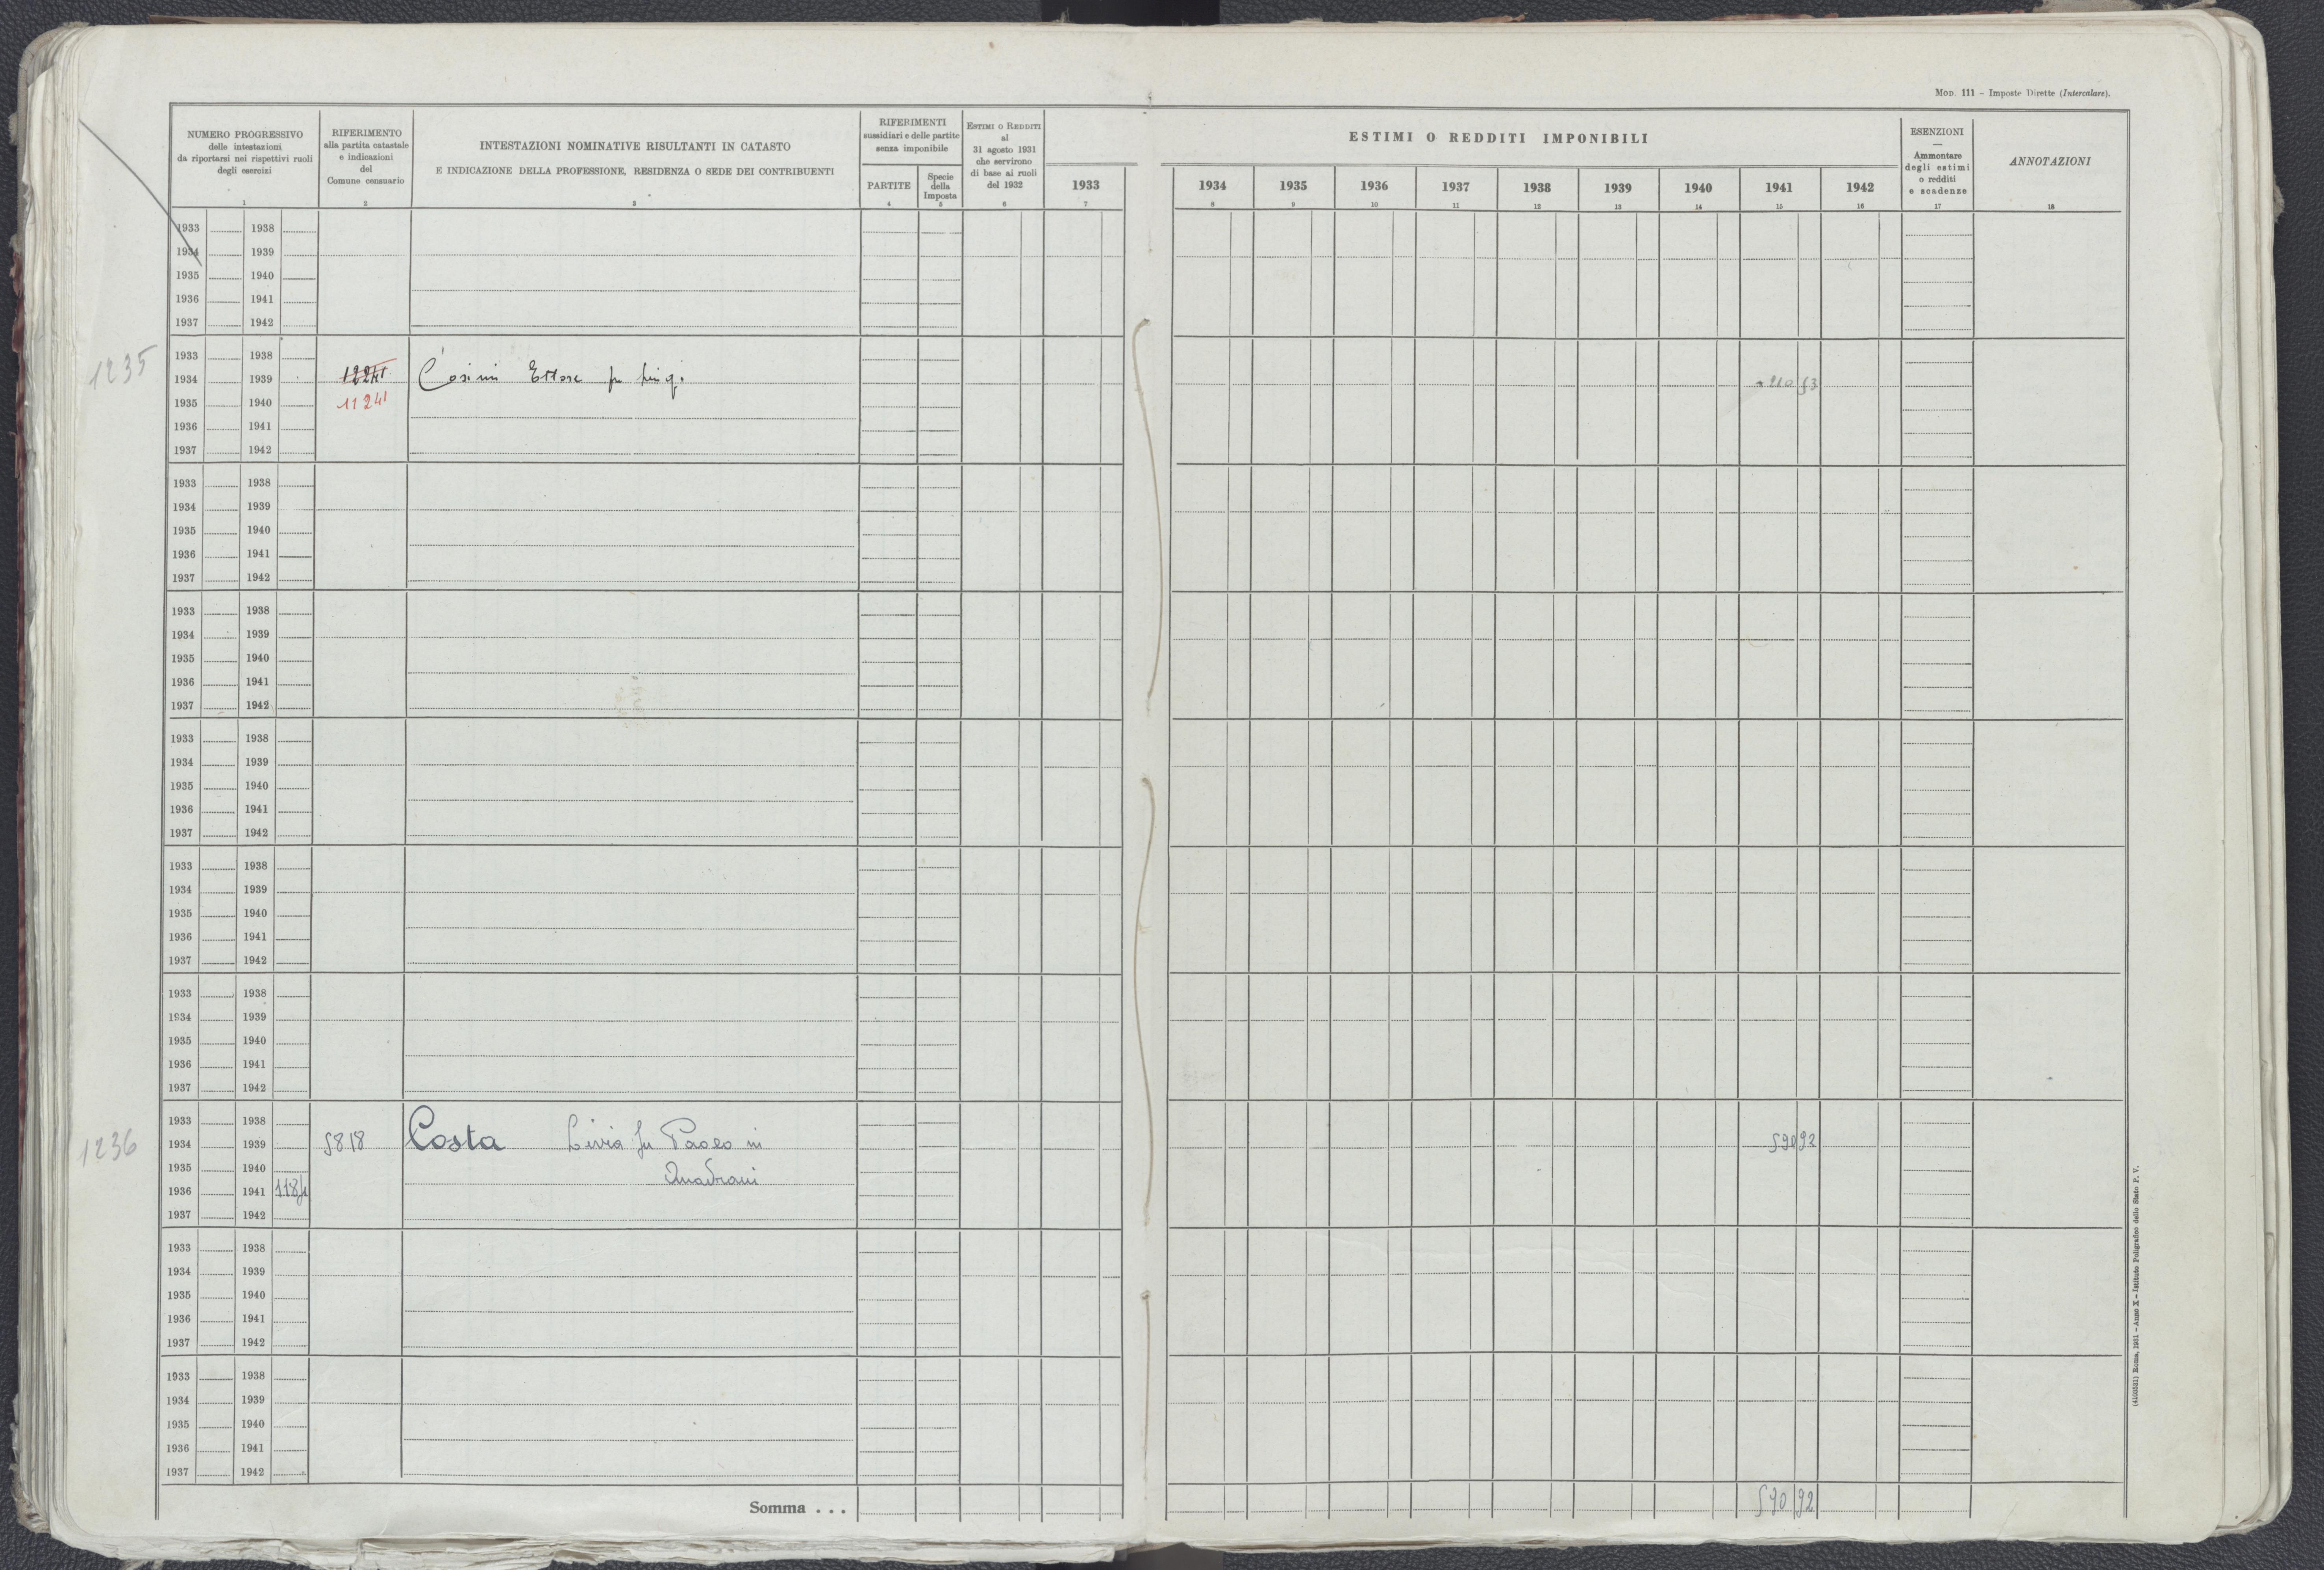 Mod. 111 – Imposte Dirette (Intercalare).
NUMERO PROGRESSIVO
delle intestazioni
da riportarsi nei rispettivi ruoli
degli esercizi
1
RIFERIMENTO
alla partita catastale
e indicazioni
del
Comune censuario
2
INTESTAZIONI NOMINATIVE RISULTANTI IN CATASTO
E INDICAZIONE DELLA PROFESSIONE, RESIDENZA O SEDE DEI CONTRIBUENTI
3
RIFERIMENTI
sussidiari e delle partite
senza imponibile
PARTITE
4
Specie
della
Imposta
5
ESTIMI O REDDITI
al
31 agosto 1931
che servirono
di base ai ruoli
del 1932
6
ESTIMI O REDDITI IMPONIBILI
1933 1934 1935 1936 1937 1938 1939 1940 1941 1942
7 8 9 10 11 12 13 14 15 16
ESENZIONI
—
Ammontare
degli estimi
o redditi
e scadenze
17
ANNOTAZIONI
18
1933 1938
1934 1939
1935 1940
1936 1941
1937 1942
1235
1933 1938
1934 1939 Cosimi Ettore fu
1935 1940 1124
1936 1941
1937 1942
1933 1938
1934 1939
1935 1940
1936 1941
1937 1942
1933 1938
1934 1939
1935 1940
1936 1941
1937 1942
1933 1938
1934 1939
1935 1940
1936 1941
1937 1942
1933 1938
1934 1939
1935 1940
1936 1941
1937 1942
1933 1938
1934 1939
1935 1940
1936 1941
1937 1942
1236
1933 1938
1934 1939 5818 Costa Livia fu Paolo in 590 92
1935 1940 Quadrani
1936 1941
1937 1942
1933 1938
1934 1939
1935 1940
1936 1941
1937 1942
1933 1938
1934 1939
1935 1940
1936 1941
1937 1942
Somma . . . 590 92
(4103531) Roma, 1931 – Anno X – Istituto Poligrafico dello Stato P. V.